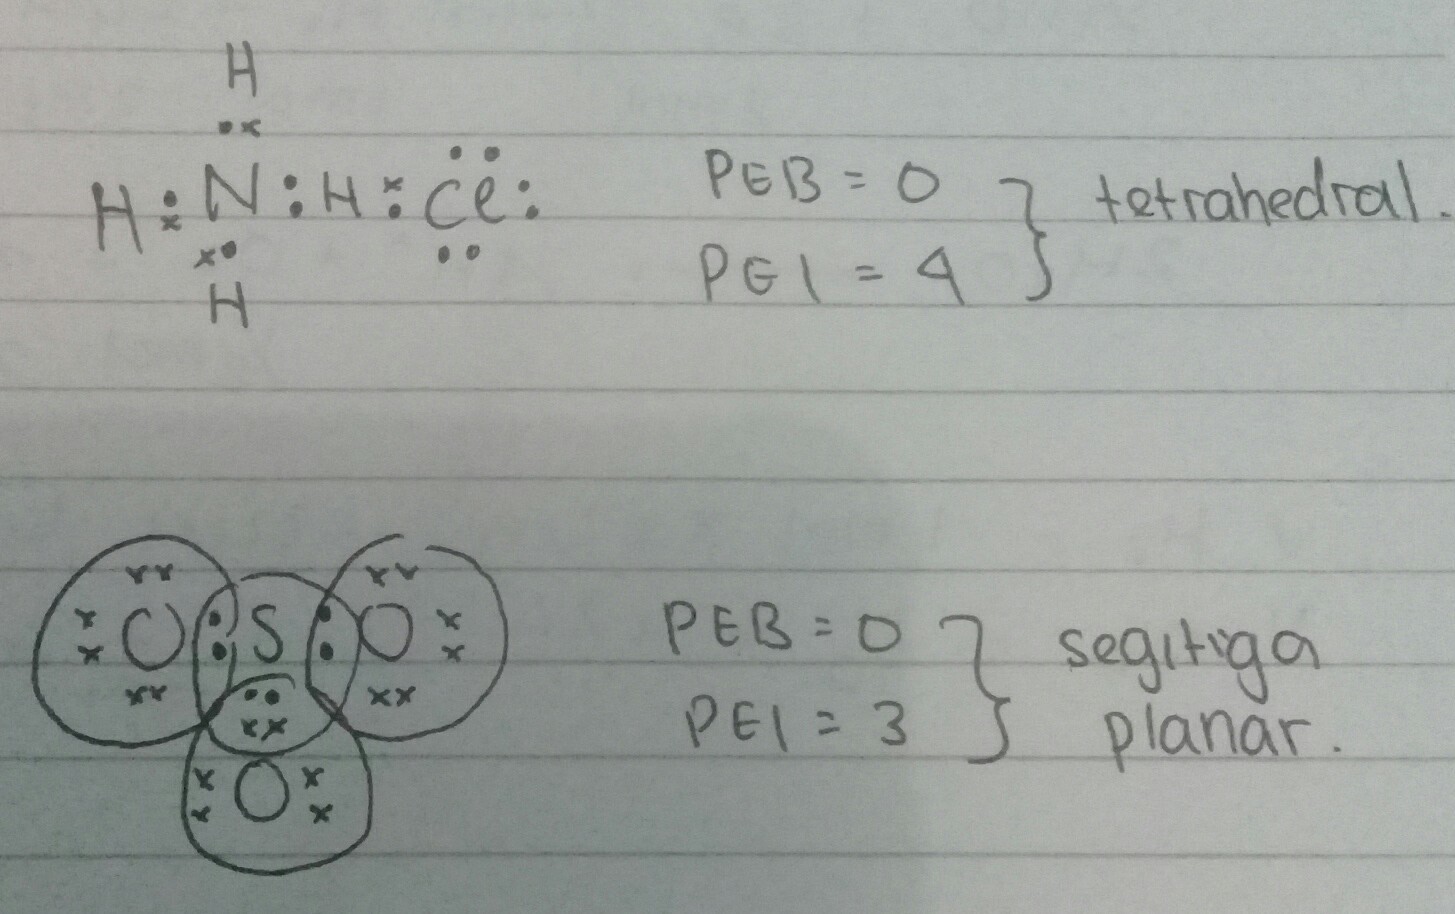 H
H : N : H : Cl :
H
PEB = 0
PEI = 4
} tetrahedral.
O S O
O
PEB = 0
PEI = 3
} segitiga
planar.